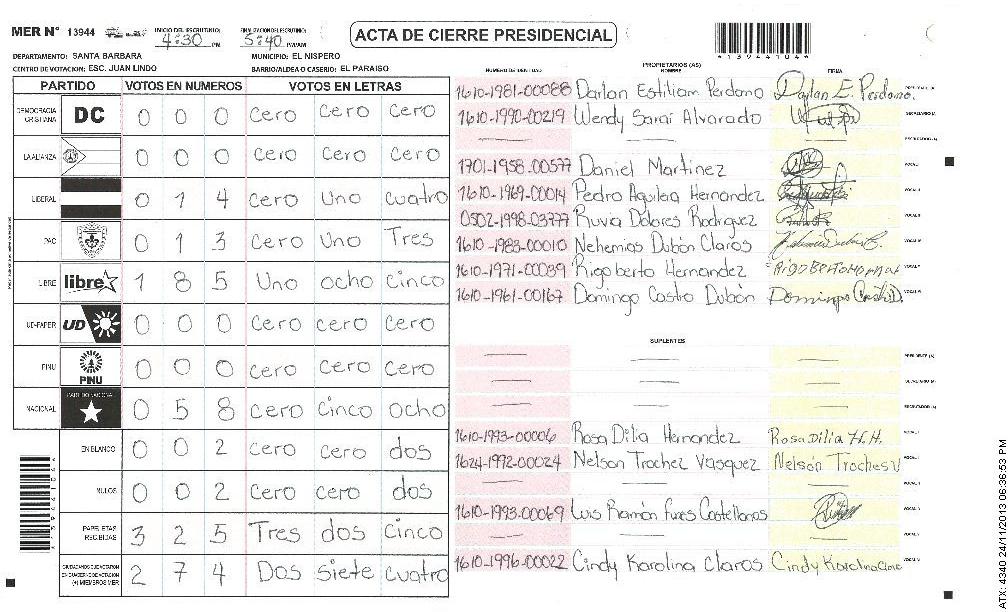 MER N° 13944 INICIO DEL ESCRUTINIO: 4:30 PM FINALIZACION DEL ESCRUTINIO: 5:40 PM/AM
ACTA DE CIERRE PRESIDENCIAL
*1394410 4*
DEPARTAMENTO: SANTA BARBARA MUNICIPIO: EL NISPERO
CENTRO DE VOTACION: ESC. JUAN LINDO BARRIO/ALDEA O CASERIO: EL PARAISO
PARTIDO VOTOS EN NUMEROS VOTOS EN LETRAS
DEMOCRACIA CRISTIANA DC 0 0 0 Cero Cero Cero
LA ALIANZA 0 0 0 Cero Cero Cero
LIBERAL 0 1 4 Cero Uno Cuatro
PAC 0 1 3 Cero Uno Tres
LIBRE libre 1 8 5 Uno ocho Cinco
UD-FAPER UD 0 0 0 Cero cero Cero
PINU PINU 0 0 0 Cero Cero Cero
NACIONAL PARTIDO NACIONAL 0 5 8 Cero Cinco Ocho
EN BLANCO 0 0 2 Cero Cero dos
NULOS 0 0 2 Cero cero dos
PAPELETAS RECIBIDAS 3 2 5 Tres dos Cinco
CIUDADANOS QUE VOTARON EN CUADERNO DE VOTACION (+) MIEMBROS MER 2 7 4 Dos Siete Cuatro
PROPIETARIOS (AS)
NUMERO DE IDENTIDAD NOMBRE FIRMA
1610-1981-00088 Darlan Estiliam Perdomo Darlan E. Perdomo. PRESIDENTE (A)
1610-1990-00219 Wendy Sarai Alvarado SECRETARIO (A)
ESCRUTADOR (A)
1701-1958-00577 Daniel Martinez VOCAL I
1610-1969-00014 Pedro Aguilea Hernandez VOCAL II
0502-1998-03777 Ruvia Dolores Rodriguez VOCAL III
1610-1983-00010 Nehemias Dubón Claros VOCAL IV
1610-1971-00039 Rigoberto Hernandez VOCAL V
1610-1961-00167 Domingo Castro Dubón Domingo Castro D. VOCAL VI
SUPLENTES
PRESIDENTE (A)
SECRETARIO (A)
ESCRUTADOR (A)
1610-1993-00006 Rosa Dilia Hernandez Rosa Dilia H.H. VOCAL I
1624-1992-00024 Nelson Trochez Vasquez Nelson Troches V
1610-1993-00069 Luis Ramón Funes Castellanos
1610-1996-00022 Cindy Karolina Claros Cindy Karolina
ATX: 4340 24/11/2013 06:36:53 PM